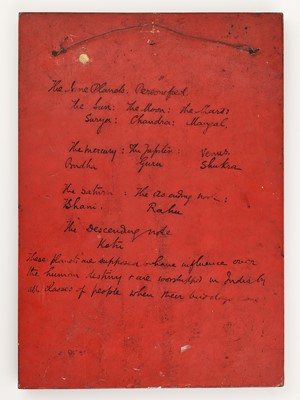 The Nine Planets. Personified.
The Sun: The Moon: The Mars:
Surya: Chandra: Mangal.
The Mercury: The Jupiter: Venus
Budha Guru Shukra
The Saturn: The Ascending node:
Shani. Rahu
The Descending node
Ketu
These planets are supposed to have influence over
the human destiny & are worshipped in India by
all classes of people when their